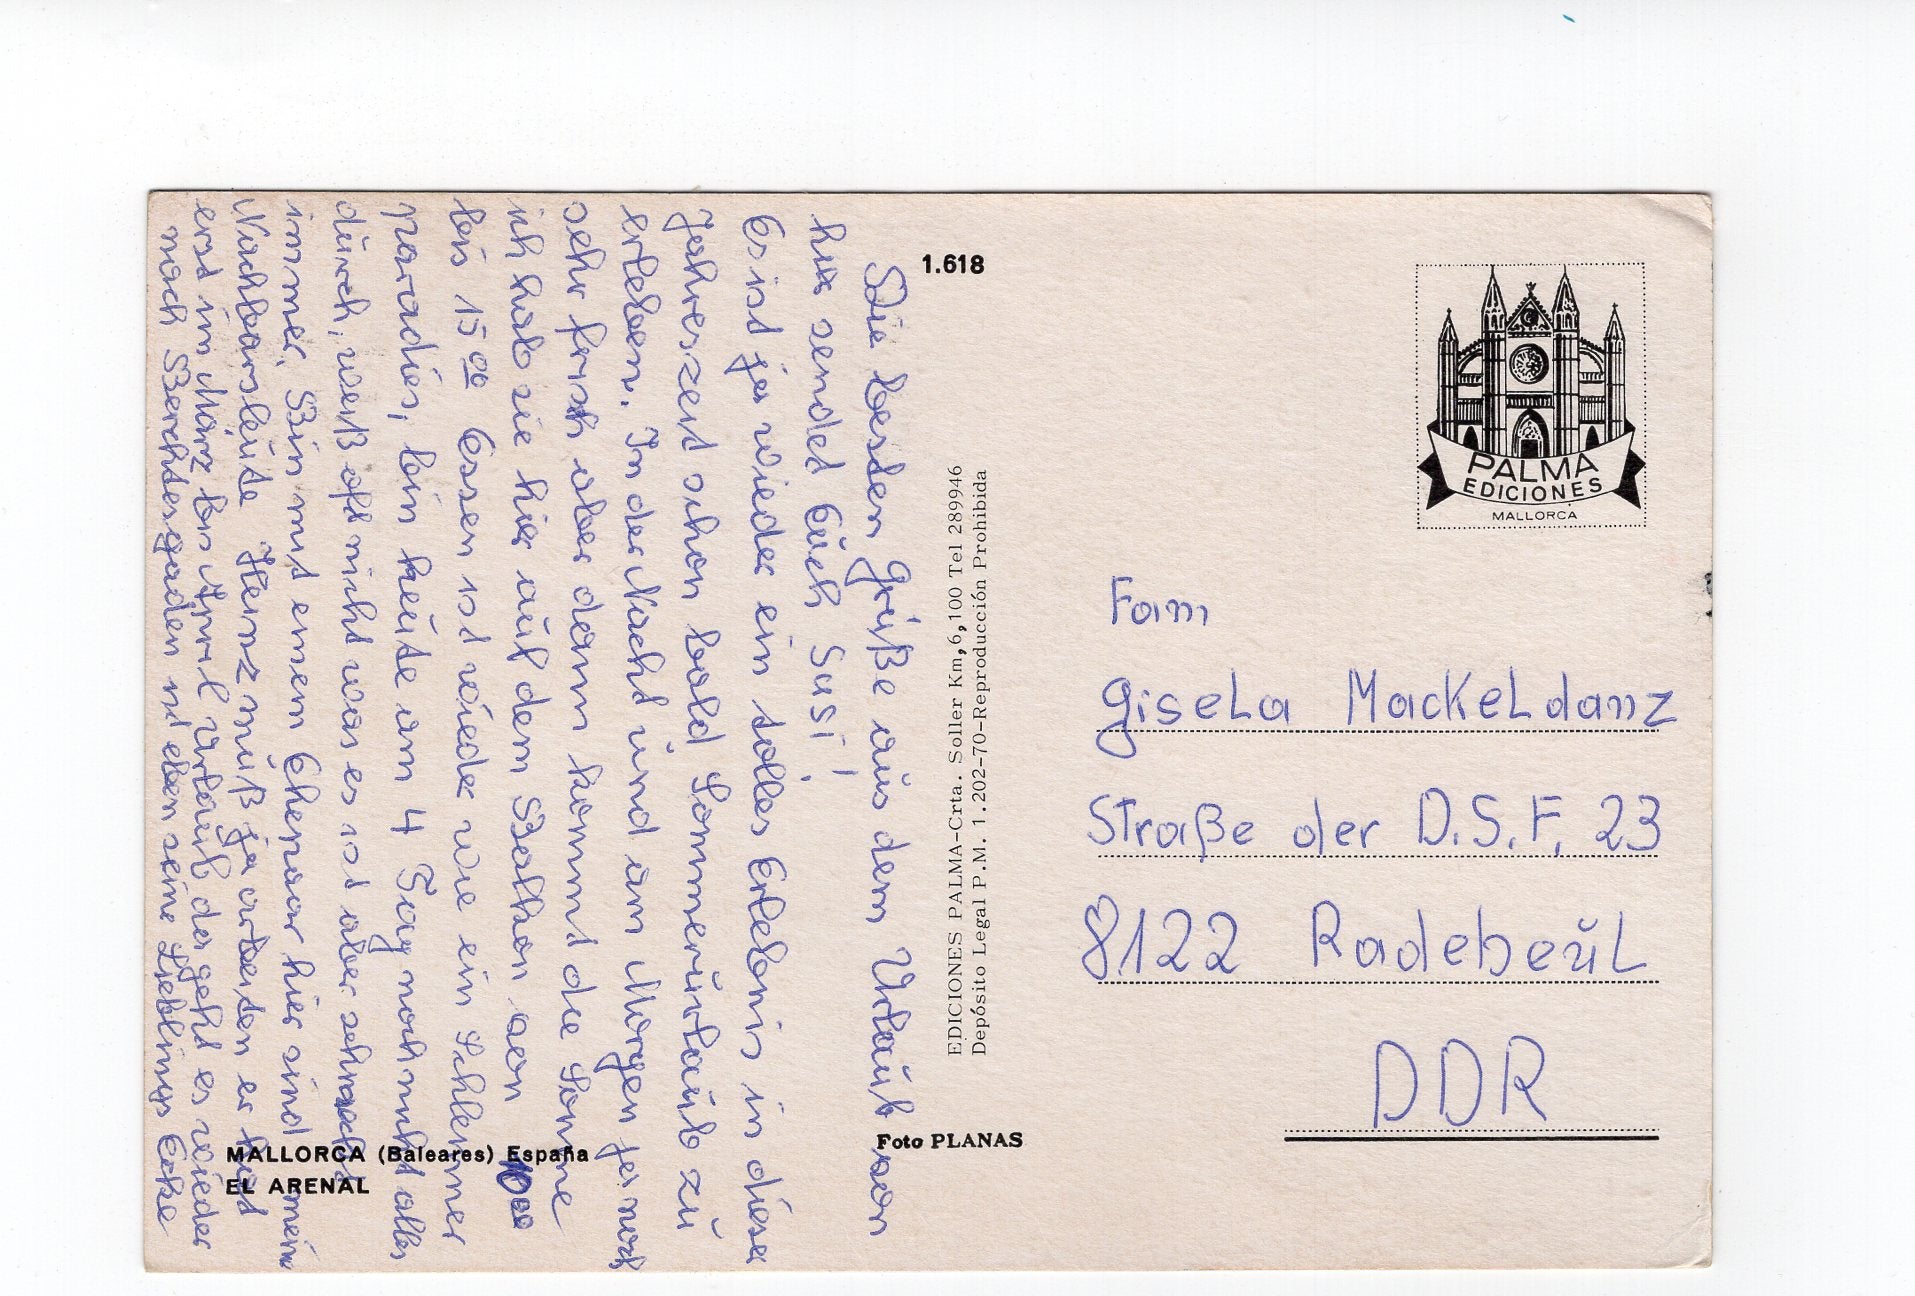 Die besten Grüße aus dem Urlaub von
hier sendet Euch Susi!
Es ist ja wieder ein tolles Erlebnis in dieser
Jahreszeit schon bald Sommerurlaub zu
erleben. In der Nacht und am Morgen ja noch
sehr frisch aber dann kommt die Sonne
ich hab sie hier auf dem Balkon von 10 00
bis 15 00 Essen ist wieder wie ein Schlemmer
paradies, bin heute am 4 Tag noch nicht alles
durch, weiß oft nicht was es ist aber schmeckt
immer. Bin mit einem Ehepaar hier sind mein
Nachbarsleute Heinz muß ja arbeiten er hat
erst im März bis April Urlaub da geht es wieder
nach Berchtesgaden ist eben seine Lieblings Ecke
MALLORCA (Baleares) España
EL ARENAL
1.618
Foto PLANAS
EDICIONES PALMA-Crta. Soller Km, 6,100 Tel 289946
Depósito Legal P.M. 1.202-70-Reproducción Prohibida
PALMA
EDICIONES
MALLORCA
Fam
Gisela Mackeldanz
Straße der D.S.F. 23
8122 Radebeul
DDR